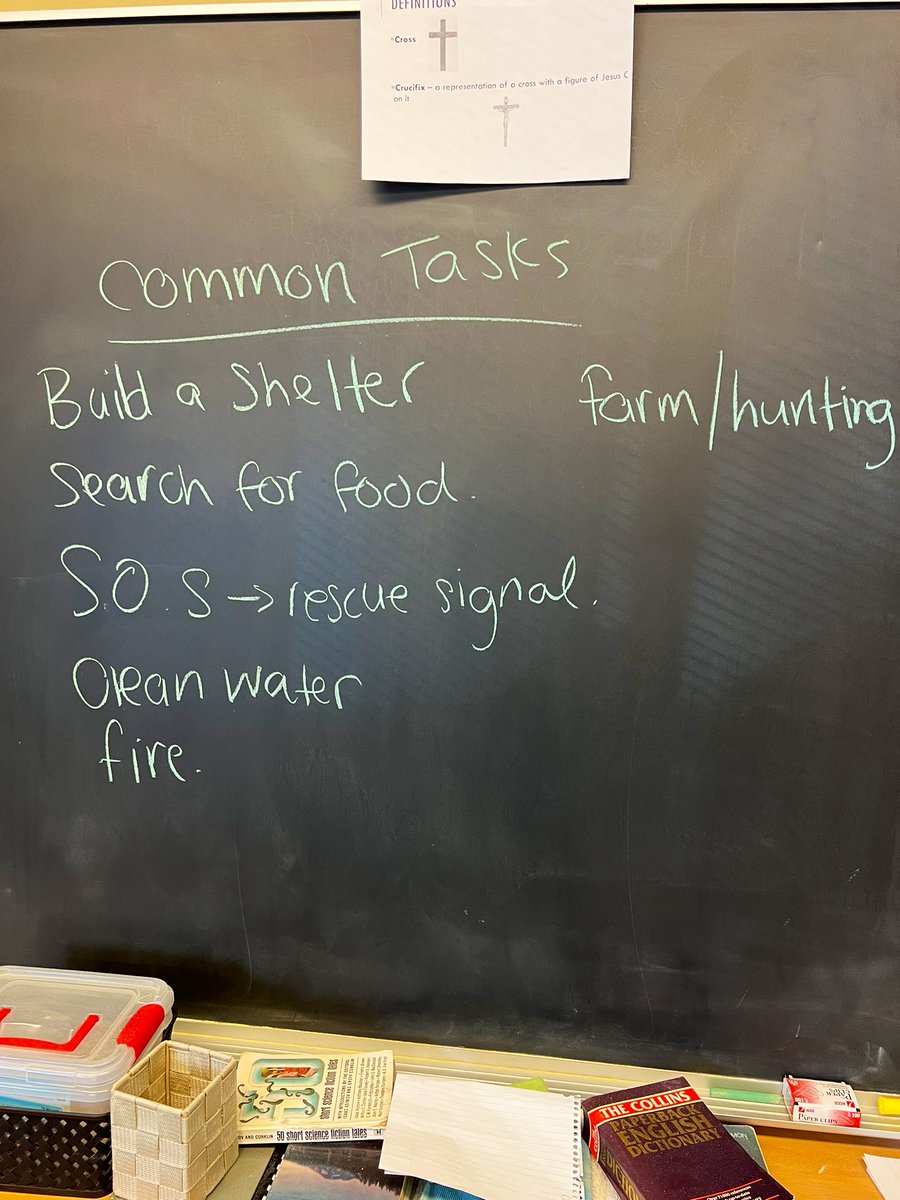 DEFINITIONS
*Cross
*Crucifix – a representation of a cross with a figure of Jesus C
on it
Common Tasks
Build a Shelter
farm/hunting
Search for food.
S.O.S → rescue signal.
Clean water
fire.
short science fiction tales
50 short science fiction tales
THE COLLINS
PAPERBACK
ENGLISH
DICTIONARY
ACCO
PAPER CLIPS